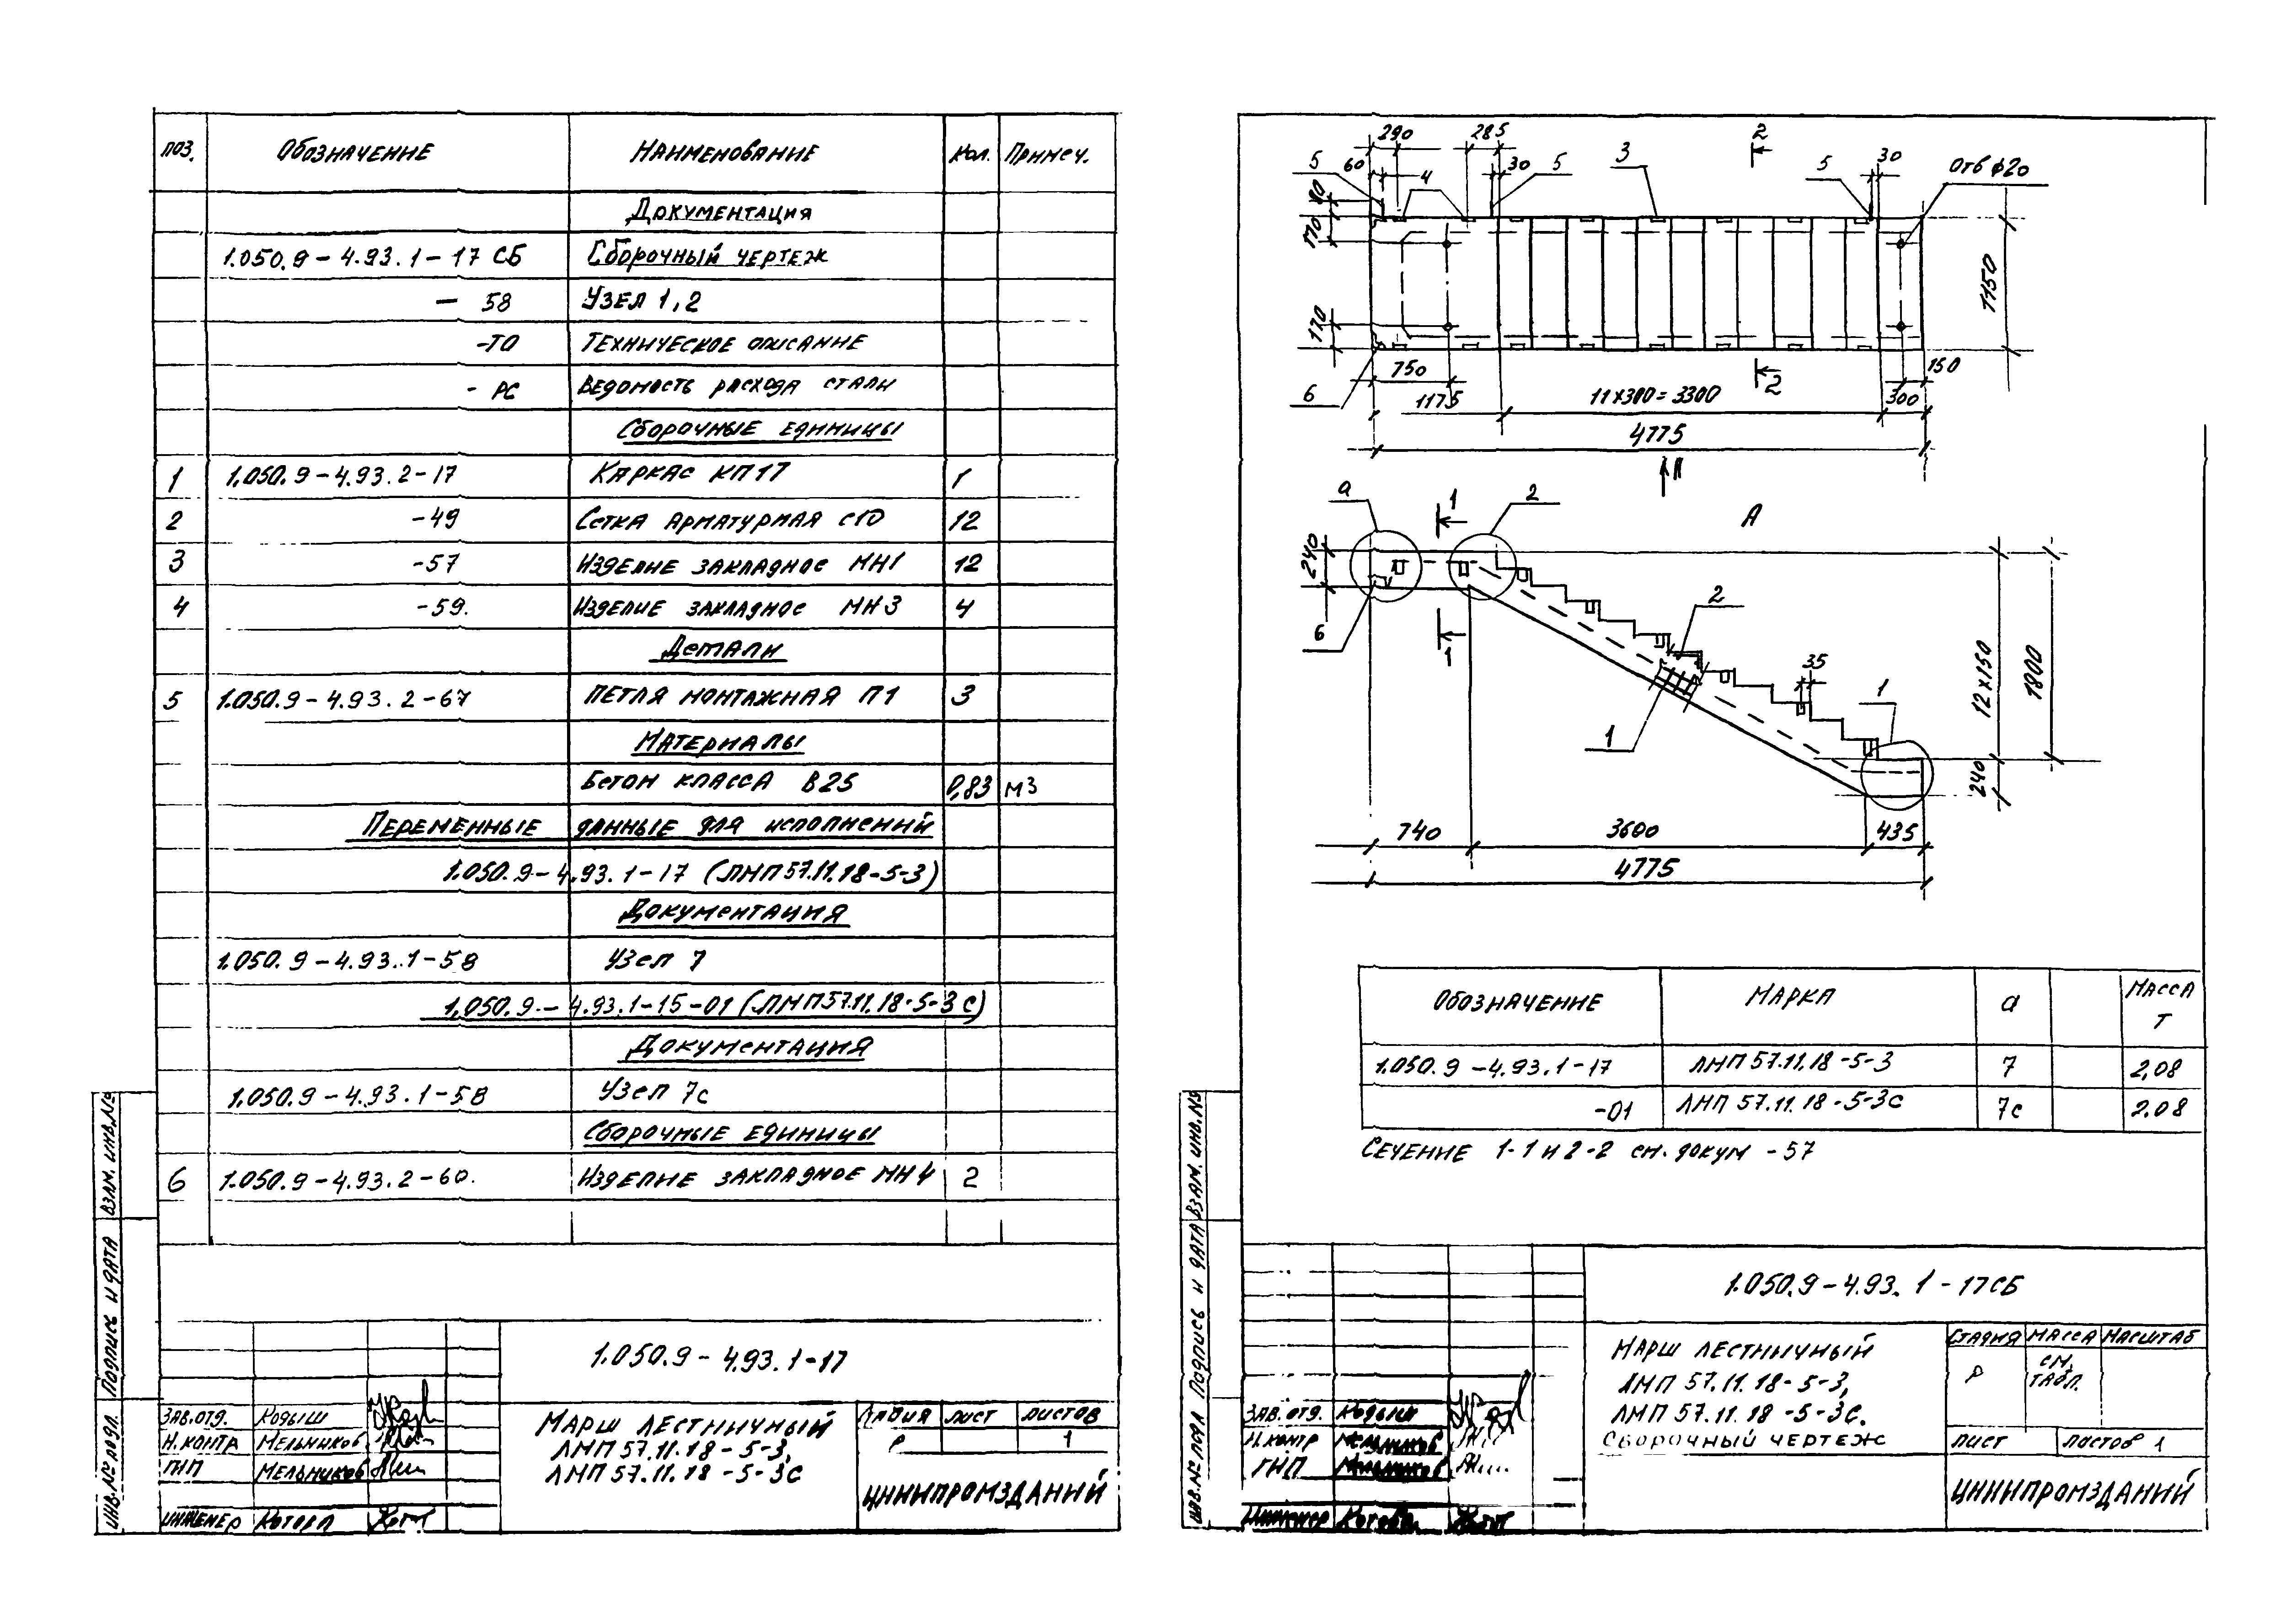 поз. Обозначение Наименование Кол. Примеч.
Документация
1.050.9-4.93.1-17 СБ Сборочный чертеж
- 58 Узел 1,2
-ТО Техническое описание
- РС Ведомость расхода стали
Сборочные единицы
1 1.050.9-4.93.2-17 Каркас КП17 1
2 -49 Сетка арматурная С10 12
3 -57 Изделие закладное МН1 12
4 -59. Изделие закладное МН3 4
Детали
5 1.050.9-4.93.2-67 Петля монтажная П1 3
Материалы
Бетон класса В25 0,83 м3
Переменные данные для исполнений
1.050.9-4.93.1-17 (ЛМП57.11.18-5-3)
Документация
1.050.9-4.93.1-58 Узел 7
1.050.9-4.93.1-15-01 (ЛМП57.11.18-5-3С)
Документация
1.050.9-4.93.1-58 Узел 7с
Сборочные единицы
6 1.050.9-4.93.2-60. Изделие закладное МН4 2
1.050.9-4.93.1-17
Марш лестничный
ЛМП 57.11.18-5-3,
ЛМП 57.11.18-5-3С
Стадия лист листов
Р 1
ЦНИИПРОМЗДАНИЙ
Зав.отд. Кодыш
Н.контр Мельников
ГИП Мельников
Инженер Котова
Инв.№ подл. Подпись и дата Взам.инв.№
290 285 2
5 60 4 30 5 3 5 30 Отв ф20
80
170
170
1150
750 2 150
6 1175 11х300=3300 300
4775
А
а 1 2 А
240
6 1
2
35
1
1
12х150
1800
240
740 3600 435
4775
Обозначение Марка а Масса
Т
1.050.9-4.93.1-17 ЛМП 57.11.18-5-3 7 2,08
-01 ЛМП 57.11.18-5-3С 7с 2.08
Сечение 1-1 и 2-2 см. докум -57
1.050.9-4.93.1-17СБ
Марш лестничный
ЛМП 57.11.18-5-3,
ЛМП 57.11.18-5-3С.
Сборочный чертеж
Стадия Масса Масштаб
Р см.
табл.
лист листов 1
ЦНИИПРОМЗДАНИЙ
Зав.отд. Кодыш
Н.контр Мельников
ГИП Мельников
Инженер Котова
Инв.№ подл Подпись и дата Взам.инв.№